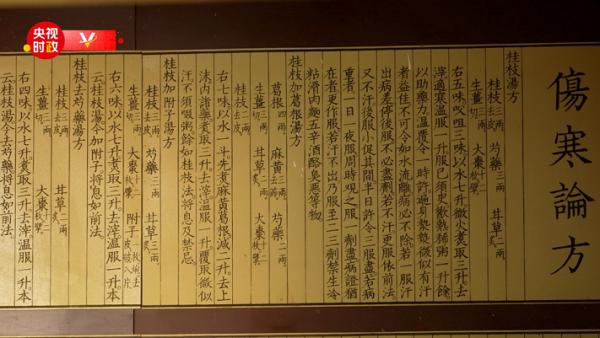 央视
时政
傷寒論方
桂枝湯方
桂枝三兩去皮 芍藥三兩 甘草二兩炙
生薑三兩切 大棗十二枚擘
右五味㕮咀三味以水七升微火煮取三升去
滓適寒溫服一升服已須臾歠熱稀粥一升餘
以助藥力溫覆令一時許遍身漐漐微似有汗
者益佳不可令如水流離病必不除若一服汗
出病差停後服不必盡劑若不汗更服依前法
又不汗後服小促其間半日許令三服盡若病
重者一日一夜服周時觀之服一劑盡病證猶
在者更作服若汗不出乃服至二三劑禁生冷
粘滑肉麵五辛酒酪臭惡等物
桂枝加葛根湯方
葛根四兩 麻黃 芍藥二兩
生薑三兩切 甘草二兩炙 大棗十二枚擘
桂枝二兩去皮
右七味以水一斗先煮麻黃葛根減二升去上
沫内諸藥煮取三升去滓溫服一升覆取微似
汗不須啜粥餘如桂枝法將息及禁忌
桂枝加附子湯方
桂枝三兩去皮 芍藥三兩 甘草三兩炙
生薑三兩切 大棗十二枚擘 附子一枚炮去皮破八片
右六味以水七升煮取三升去滓溫服一升本
云桂枝湯今加附子將息如前法
桂枝去芍藥湯方
桂枝三兩去皮 甘草二兩炙
生薑三兩切 大棗十二枚擘
右四味以水七升煮取三升去滓溫服一升本
云桂枝湯今去芍藥將息如前法